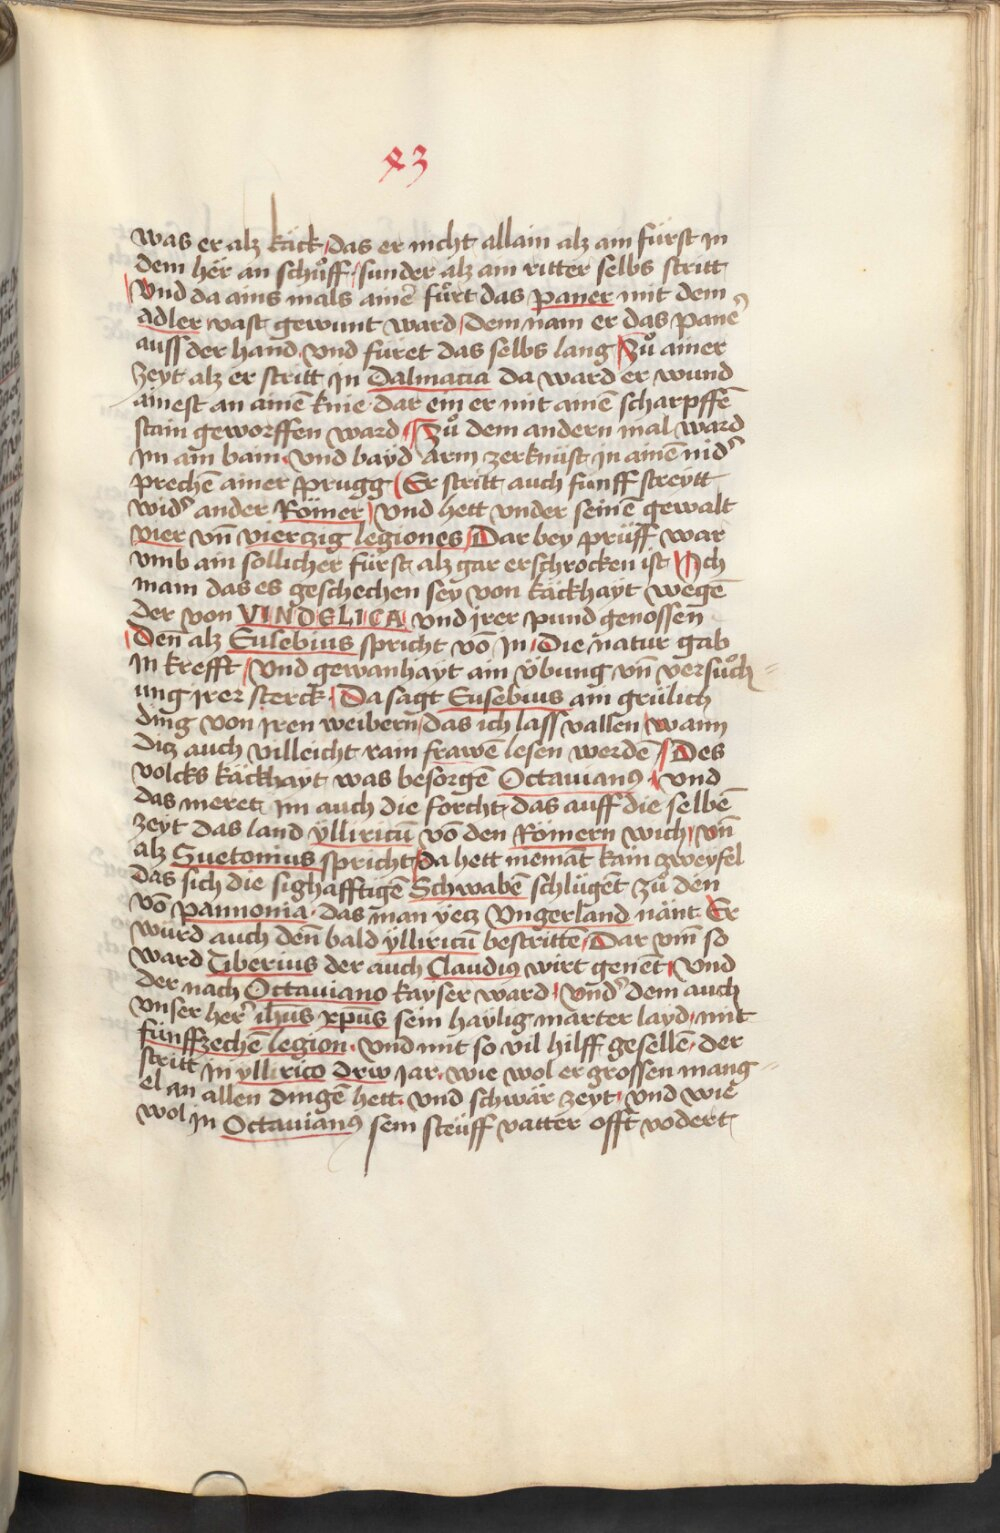 43
was er alz käck / das er nicht allain alz ain fürst in
dem hër an schůff / sunder alz ain ritter selbs stritt
Vnd da ains mals ainer fůrt das paner mit dem
adler vast gewunt ward / dem nam er das pane᷑
auss der hand vnd füret das selbs lang / Zů ainer
zeyt alz er stritt in Dalmacia da ward er wund
ainest an ainē knie dar ein er mit ainē scharpffē
stain geworffen ward / Zů dem andern mal ward
im ain bain vnd bayd arm zerknüst in ainē nid᷑
prechē ainer prugg / Er stritt auch fünff streytt
wid᷑ ander Römer / vnd hett vnder seinē gewalt
vier vn̄ vierczig legiones / Dar bey prüff war
vmb ain sollicher fürst alz gar erschrocken ist / Ich
main das es geschechen sey von käckhayt wegē
der von VINDELICA / vnd irer pund genossen
Den alz Eusebius spricht vō in / Die natur gab
in krefft / vnd gewanhayt ain übung vn̄ versůch=
ung irer sterck / Da sagt Eusebius ain grülich
ding von iren weibern / das ich lass vallen / wann
diz auch villeicht rain frawē lesen werdē / Des
volcks käckhayt was besorgē Octauian9 / vnd
das meret im auch die forcht / das auff die selbē
zeyt das land ÿlliricū vō den Römern wich / vn̄
alz Suetonius spricht / da hett niemāt kain zweyfel
das sich die sighafftigē Schwabē schlügent zů den
vō pannonia / das man yecz Vngerland nānt / Er
würd auch den̄ bald ÿlliricū bestrittē / Dar vm̄ so
ward Tiberius der auch Claudi9 wirt genēt / Vnd
der nach Octauiano kayser ward / Vnd᷑ dem auch
vnser her᷑ ihus xp̄us sein haylig marter layd / mit
fünffzechē legion / vnd mit so vil hilff gesellē / der
stritt in yllirico drew iar / wie wol er grossen mang=
el an allen dingē hett / vnd schwär zeyt / vnd wie
wol in Octauian9 sein steüff vatter offt vodert